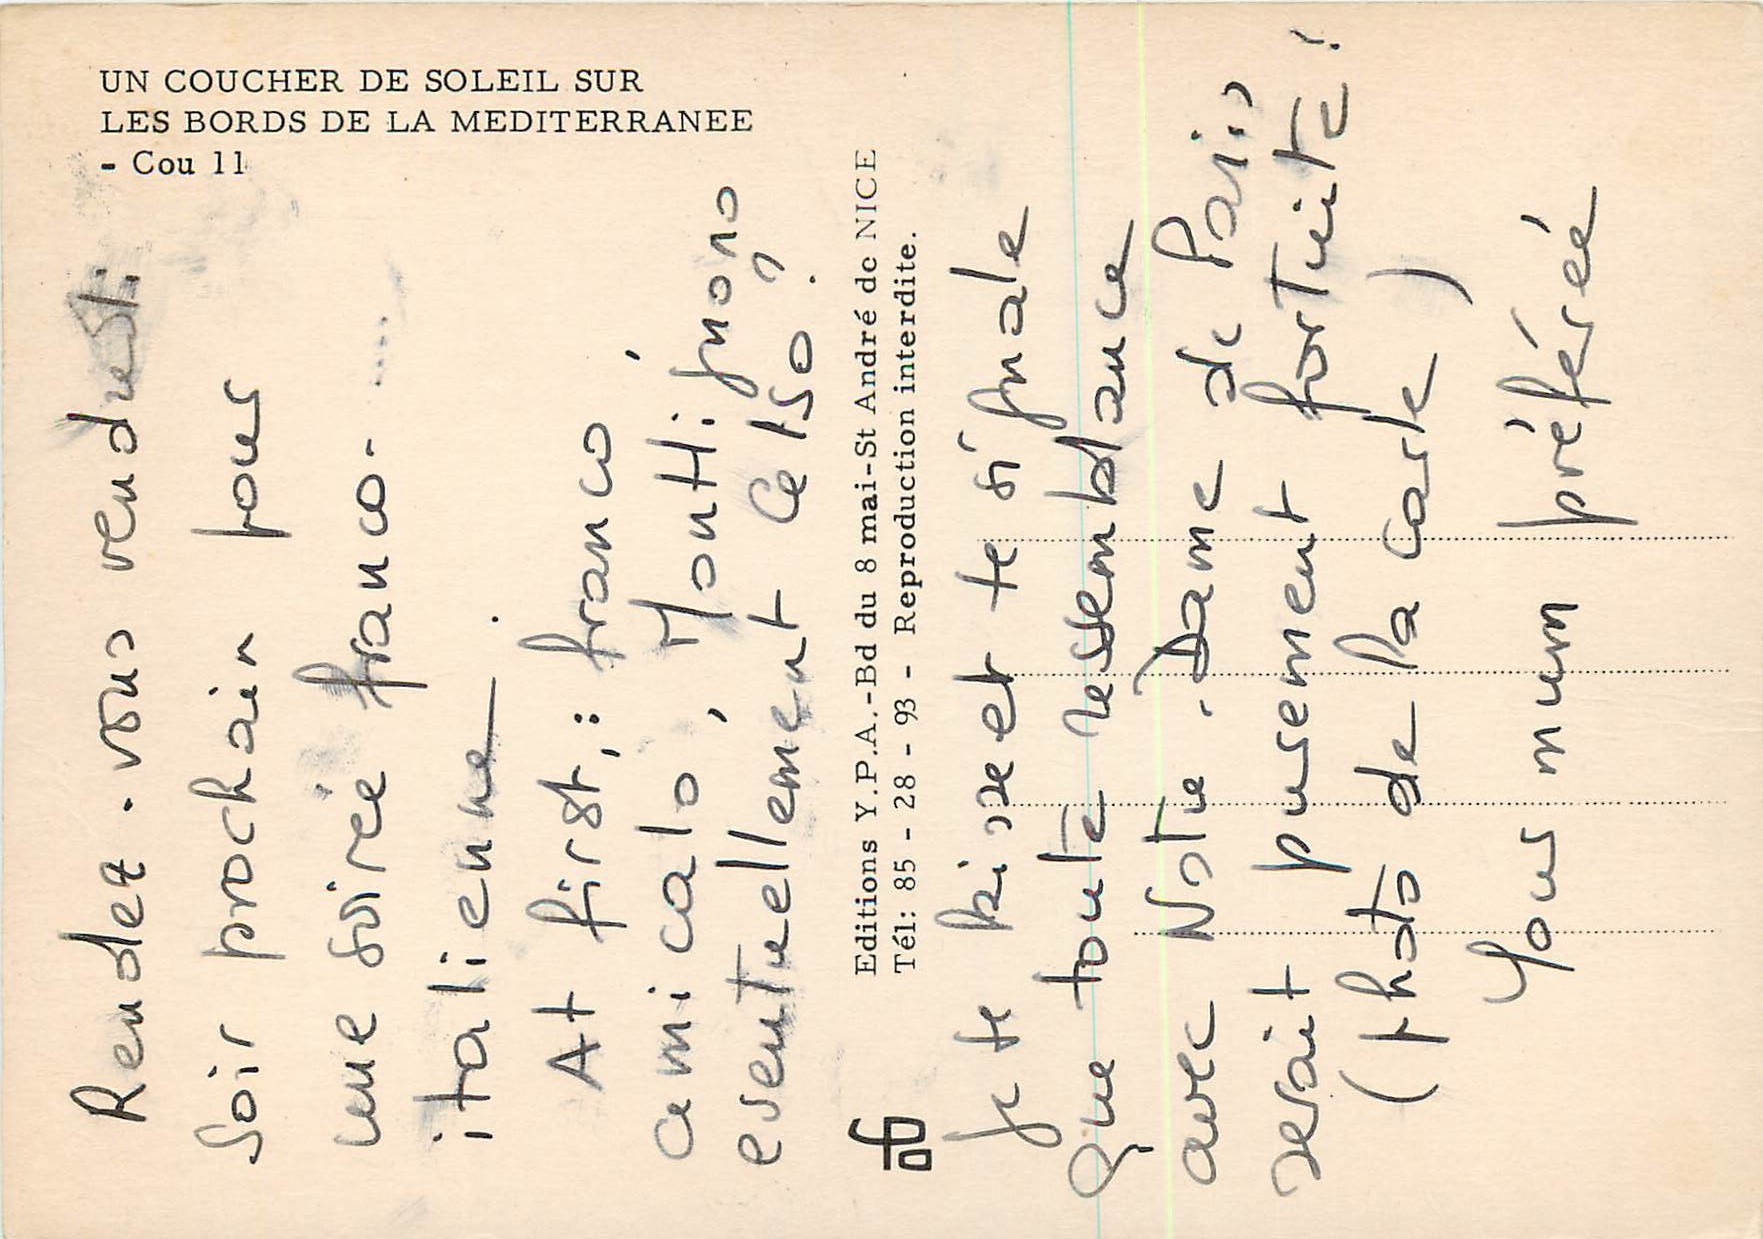 UN COUCHER DE SOLEIL SUR
LES BORDS DE LA MEDITERRANEE
- Cou 11
Rendez-vous vendredi
soir prochain pour
une soirée franco-....
italienne.
At first,: franco
amicalo, Montignono,
eventuellement Celso.
Editions Y.P.A.-Bd du 8 mai-St André de NICE
Tél: 85 - 28 - 93 - Reproduction interdite.
Je te kisse et te signale
que toute ressemblance
avec Notre-Dame de Paris
serait purement fortuite!
(photo de la carte)
Your mum préférée